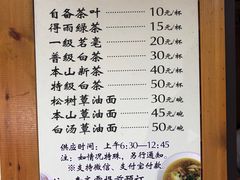 自备茶叶 10元/杯
得雨绿茶 15元/杯
一级茗毫 20元/杯
普级白茶 30元/杯
本山新茶 40元/杯
特级白茶 50元/杯
松树蕈油面 30元/碗
本山蕈油面 45元/碗
白汤蕈油面 50元/碗
供应时间：上午6:30—12:45
注：如情况特殊，另行通知
※支持微信、支付宝付款